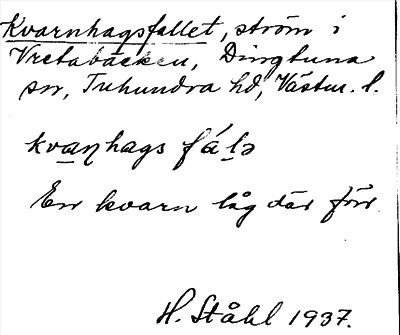 Kvarnhagsfallet, ström i
Vretabäcken, Dingtuna
sn, Tuhundra hd, Västm. l.
kvaɳhags fálə
En kvarn låg där förr.
H. Ståhl 1937.